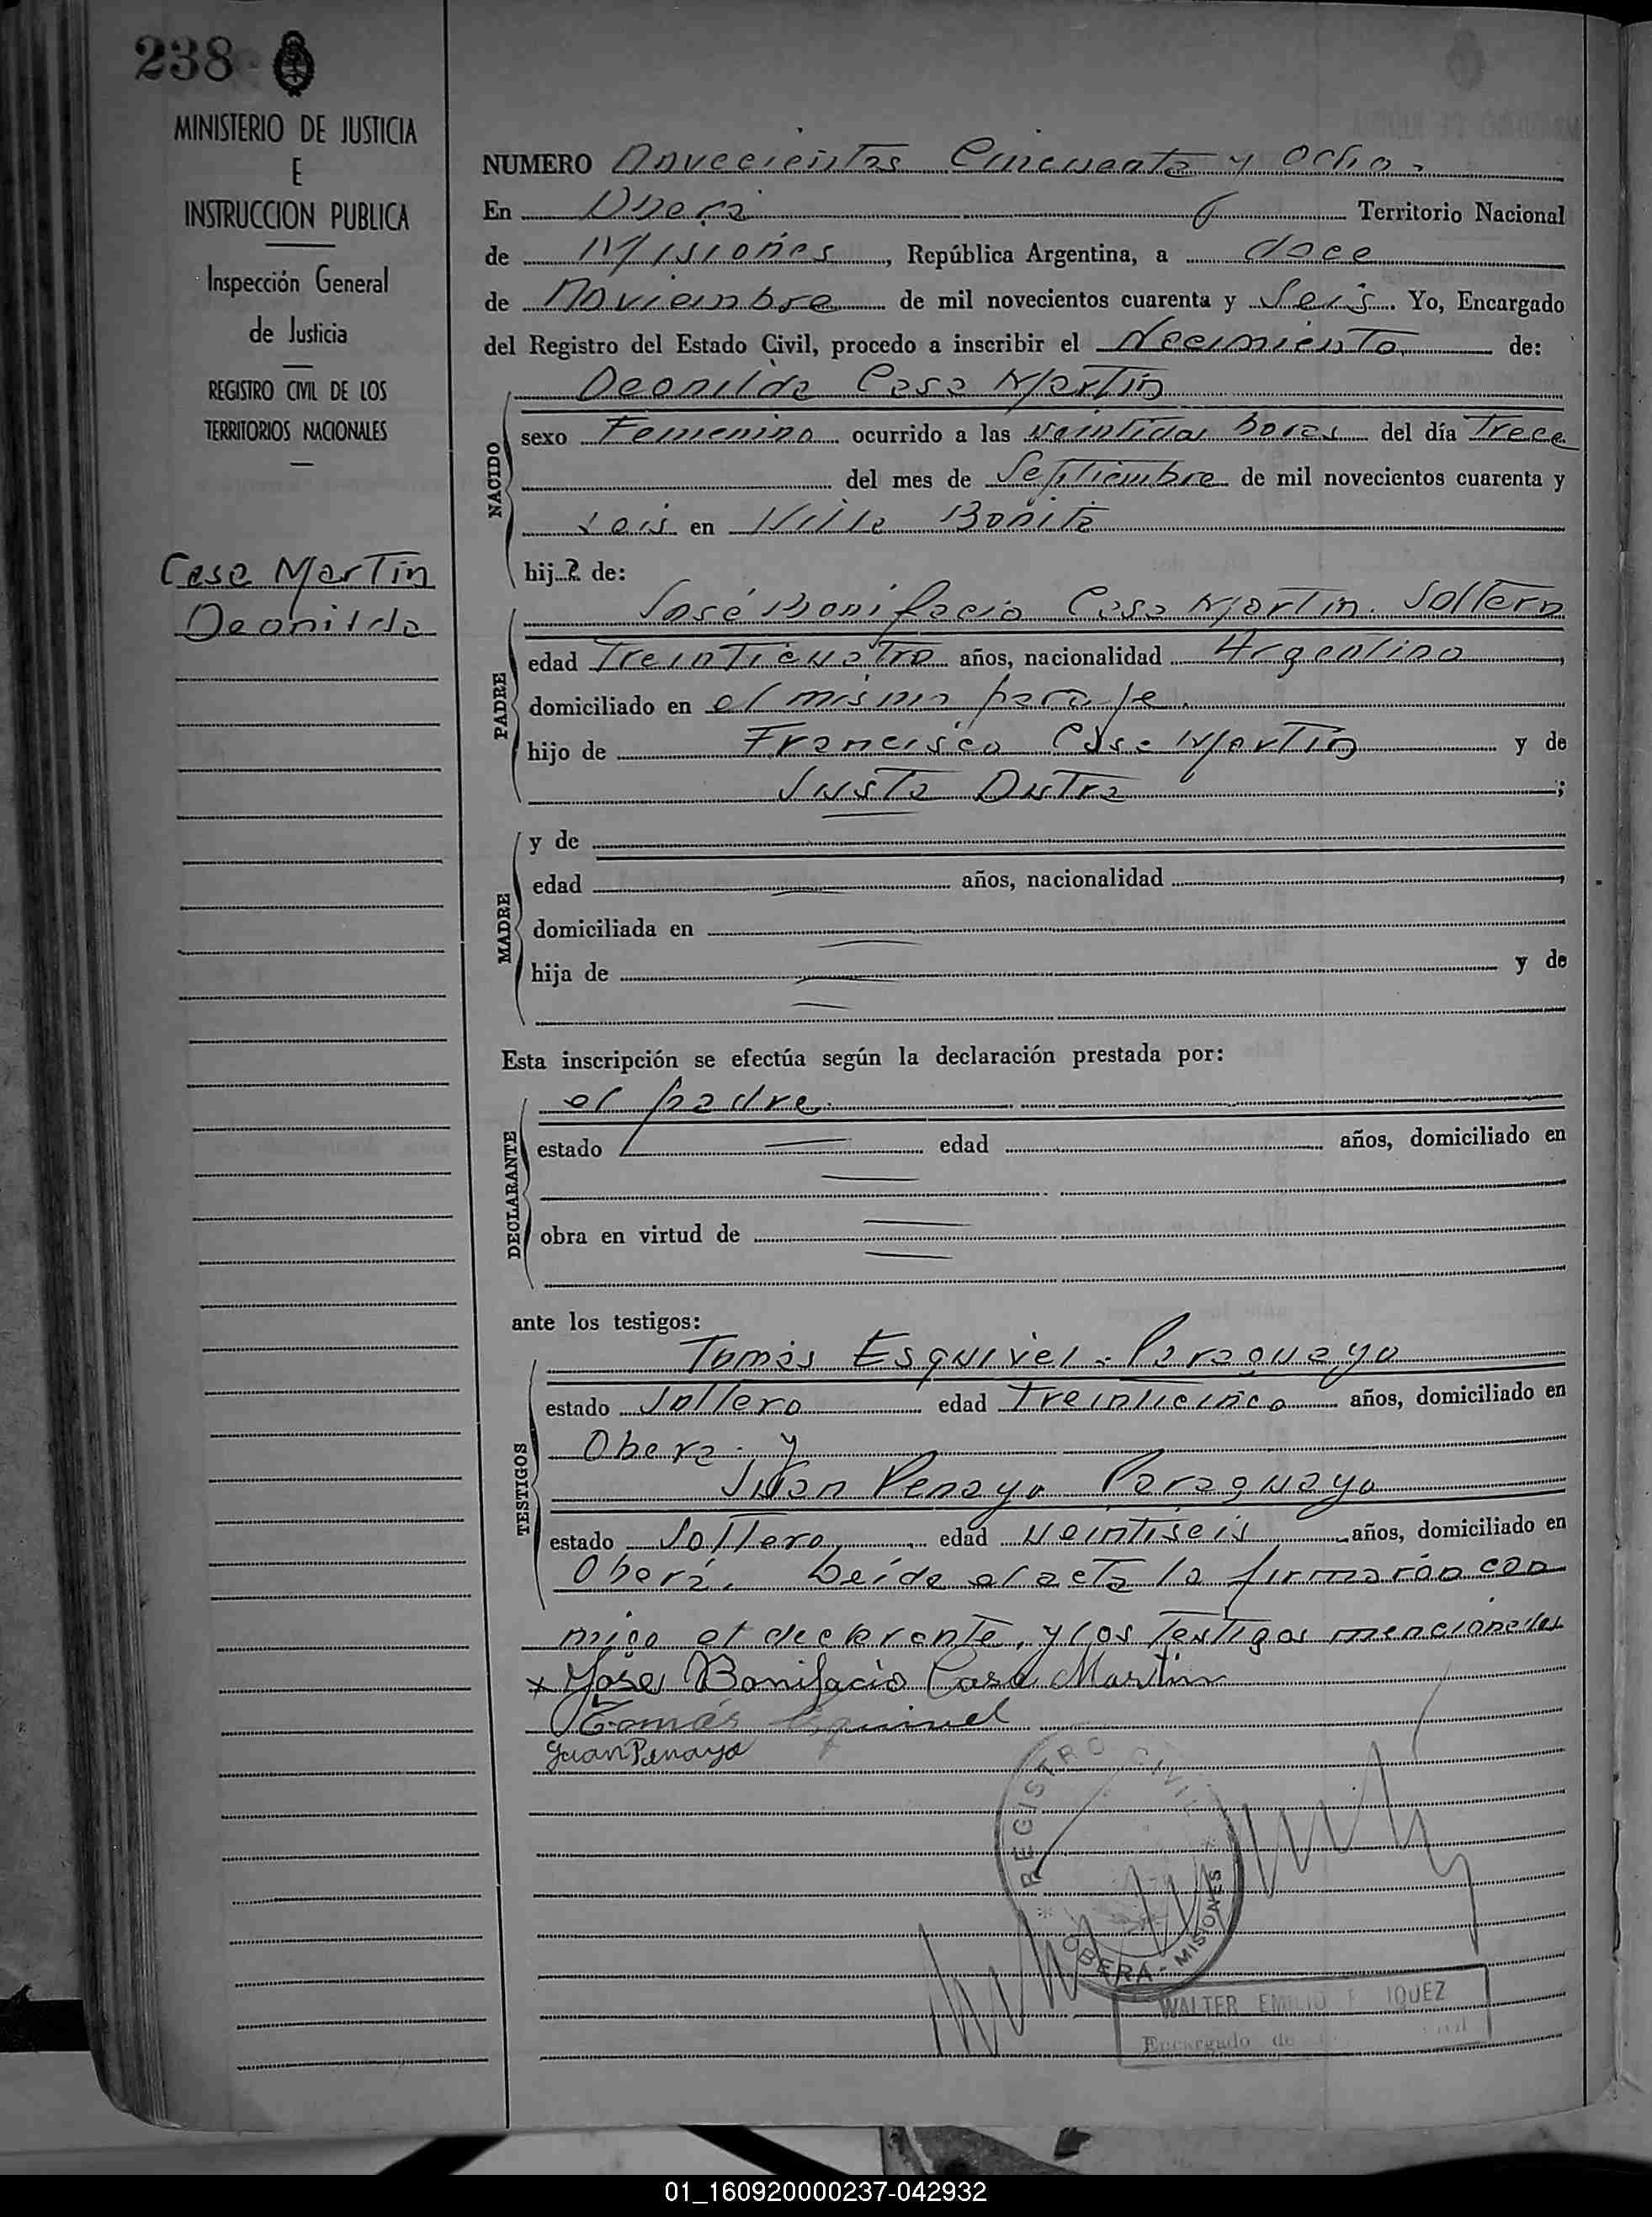 238
MINISTERIO DE JUSTICIA
E
INSTRUCCION PUBLICA
Inspección General
de Justicia
REGISTRO CIVIL DE LOS
TERRITORIOS NACIONALES
Casa Martin
Deonilda
NUMERO Novecientos Cincuenta y ocho.
En Oberá Territorio Nacional
de Misiones, República Argentina, a doce
de Noviembre de mil novecientos cuarenta y Seis. Yo, Encargado
del Registro del Estado Civil, procedo a inscribir el Nacimiento de:
NACIDO
Deonilda Casa Martin
sexo Femenino ocurrido a las veintidos horas del día Trece
del mes de Septiembre de mil novecientos cuarenta y
seis en Villa Bonita
hija de:
PADRE
José Bonifacio Casa Martin. Soltero
edad Treinticuatro años, nacionalidad Argentino,
domiciliado en el mismo paraje.
hijo de Francisco Casa Martin y de
Justa Dutra;
MADRE
y de
edad años, nacionalidad ,
domiciliada en
hija de y de
Esta inscripción se efectúa según la declaración prestada por:
DECLARANTE
el padre.
estado edad años, domiciliado en
obra en virtud de
ante los testigos:
TESTIGOS
Tomás Esquivel. Paraguayo
estado Soltero edad Treinticinco años, domiciliado en
Oberá. y
Juan Penayo Paraguayo
estado Soltero edad veintiseis años, domiciliado en
Oberá. Leída el acta la firmarón con
migo el declarante, y los Testigos mencionados
x Jose Bonifacio Casa Martin
Tomás Esquivel
Juan Penayo
REGISTRO CIVIL
OBERA - MISIONES
WALTER EMILIO
Encargado de
01_160920000237-042932